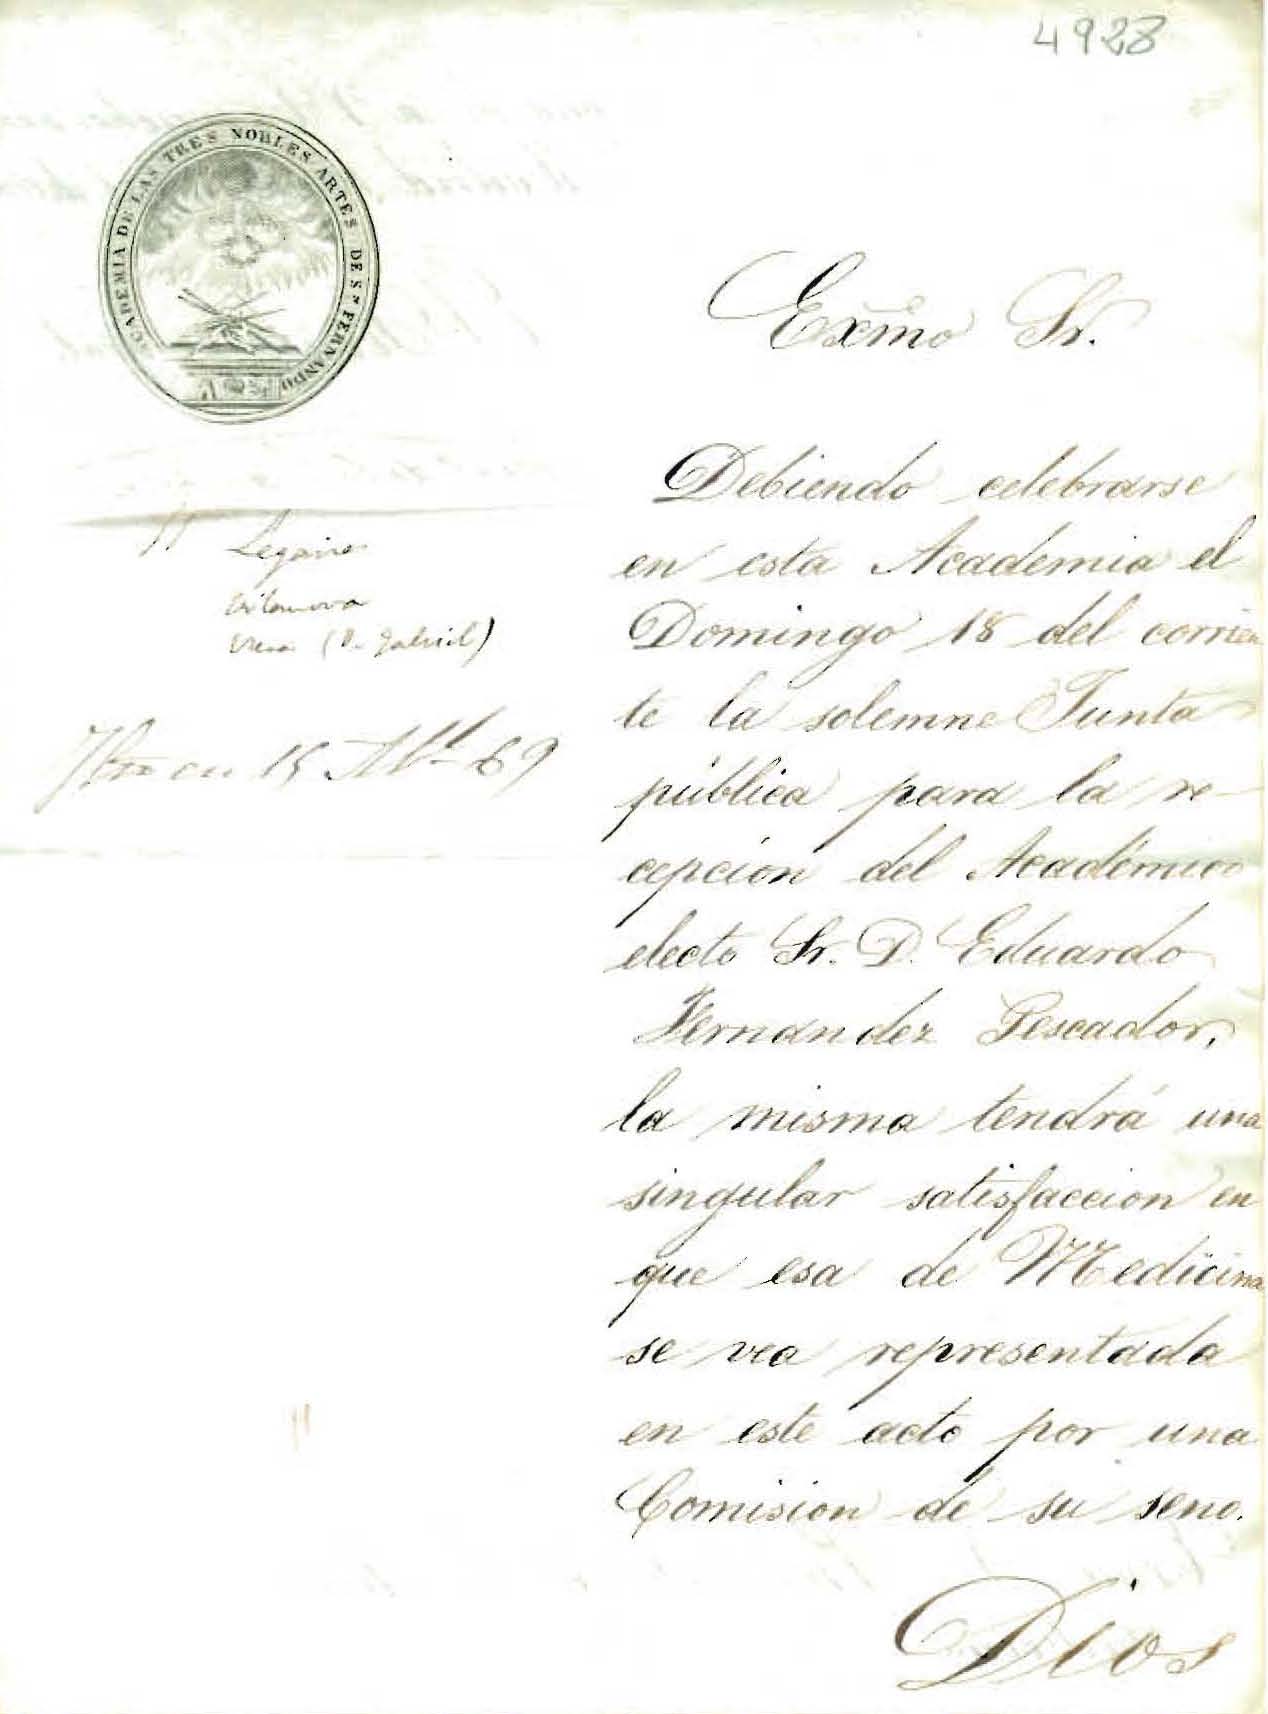 4928
ACADEMIA DE LAS TRES NOBLES ARTES DE Sn FERNANDO
Exmo Sr.
Debiendo celebrarse
en esta Academia el
Domingo 18 del corrien
te la solemne Junta
pública para la re-
cepcion del Académico
electo Sr. D. Eduardo
Fernandez Pescador,
la misma tendrá una
singular satisfaccion en
que esa de Medicina
se vea representada
en este acto por una
Comision de su seno.
Dios
Vilanova
(D. Gabriel)
en 15 Abl 69